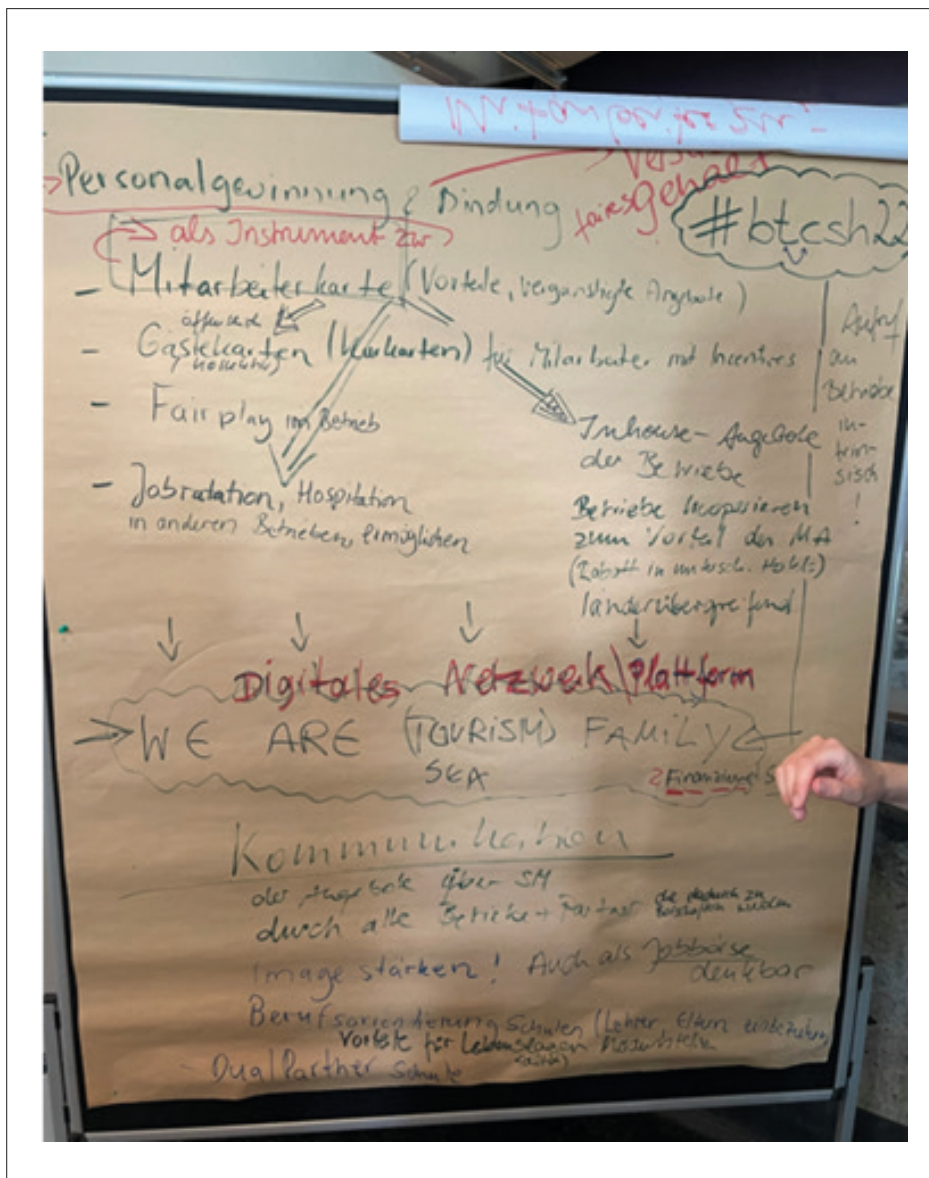 Personalgewinnung & Bindung
faires Gehalt
#btcsh22
als Instrument zur
- Mitarbeiterkarte (Vorteile, vergünstigte Angebote)
- Gästekarten (Kurkarten) für Mitarbeiter mit Incentives
- Fairplay im Betrieb
- Jobradation, Hospitation
in anderen Betrieben, ermöglichen
Inhouse-Angebote
der Betriebe
Betriebe kooperieren
zum Vorteil der MA
(Rabatt in untersch. Hotels)
länderübergreifend
Aufruf
an
Betriebe
in-
trin-
sisch
!
Digitales Netzwerk\Plattform
WE ARE (TOURISM) FAMILY
SEA
Finanzierung
Kommunikation
der Angebote über SM
durch alle Betriebe + Partner die dadurch zu
Botschaftern werden
Image stärken! Auch als Jobbörse
denkbar
Berufsorientierung Schulen (Lehrer, Eltern einbeziehen)
Vorteile für
- Dual Partner Schule